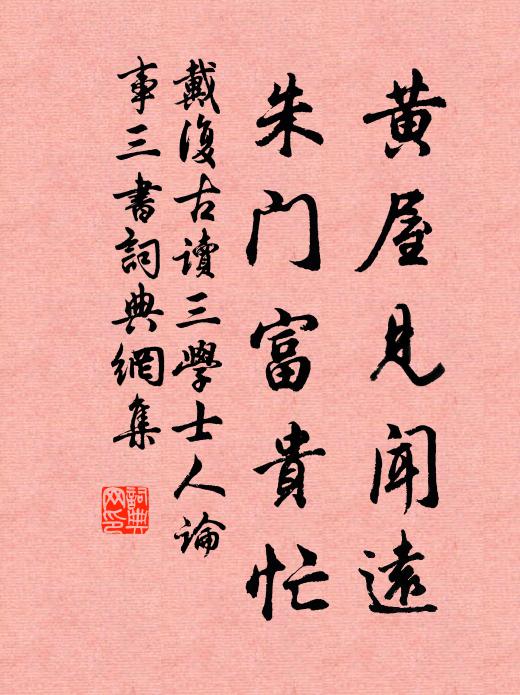 黄屋見聞遠
朱门富貴忙
戴復古讀三學士人論
事三書詞典網集
詞典网印